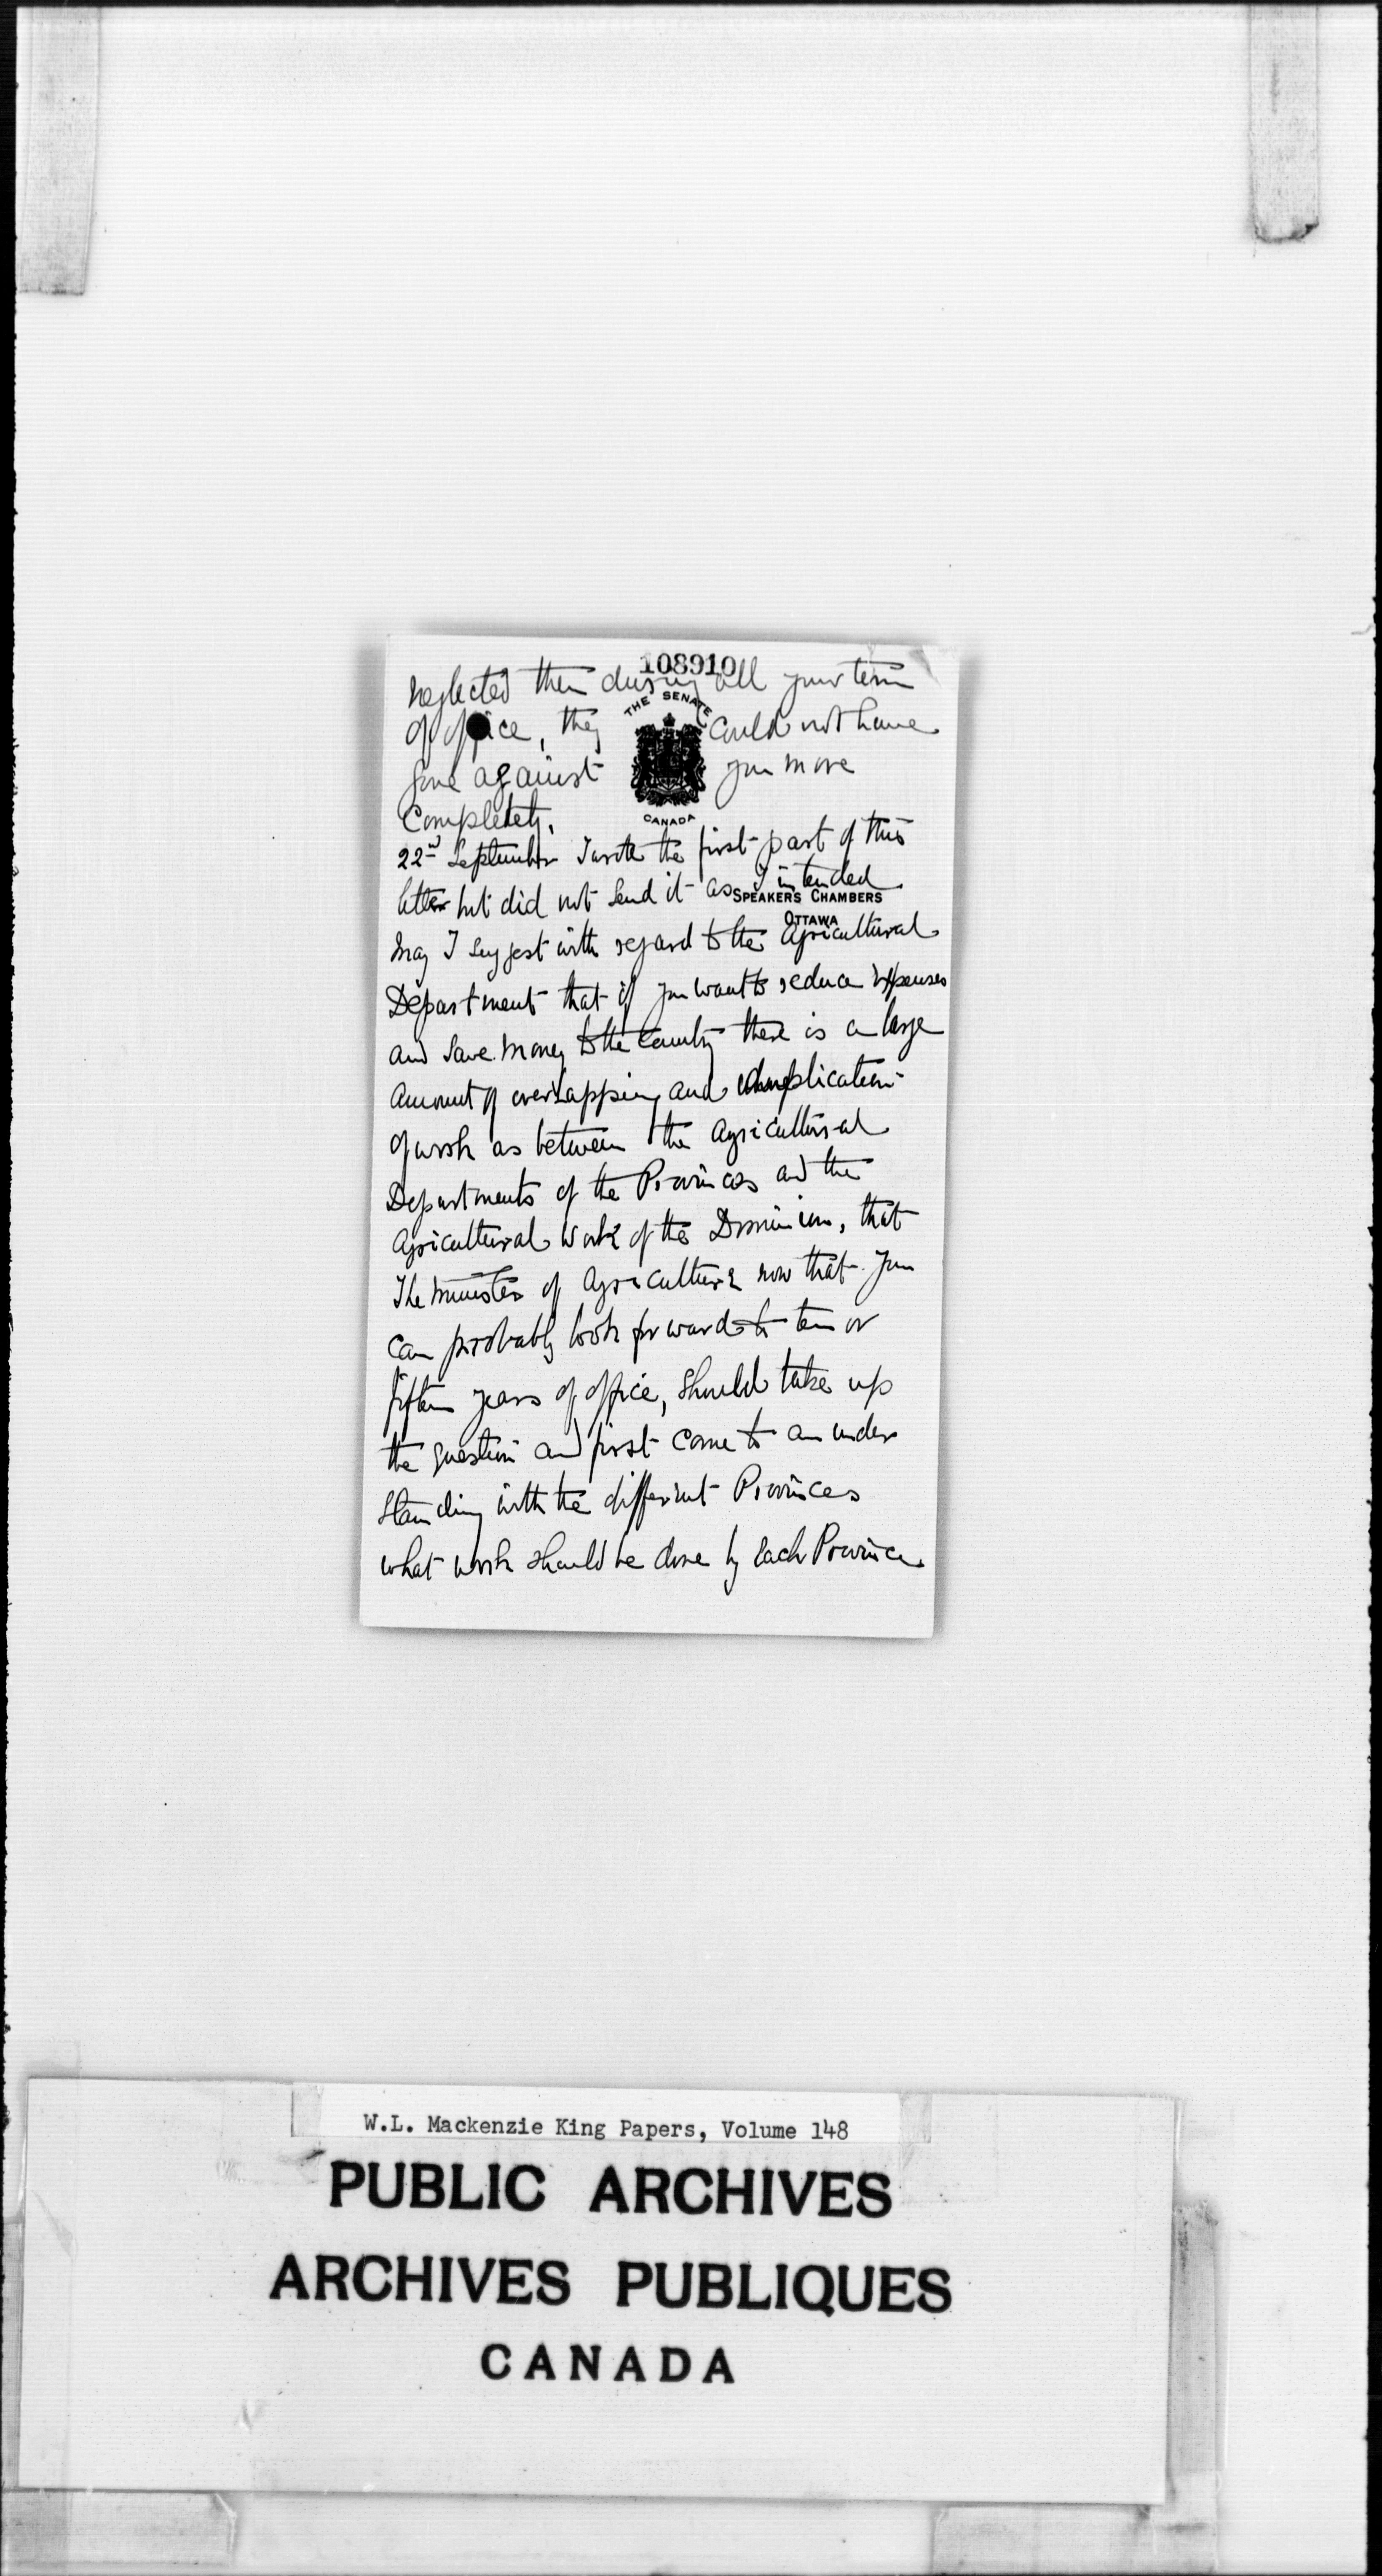 108910
neglected them during all your term
THE SENATE
of office, they could not have
gone against you more
CANADA
completely.
22nd September I wrote the first part of this
letter but did not send it as I intended
SPEAKERS CHAMBERS
OTTAWA
May I suggest with regard to the Agricultural
Department that if you want to reduce expenses
and save money to the country there is a large
amount of overlapping and duplication
of work as between the Agricultural
Departments of the Provinces and the
Agricultural Work of the Dominion, that
The Minister of Agriculture now that you
can probably look forward to ten or
fifteen years of office, should take up
the question and first come to an under
standing with the different Provinces
what work should be done by each Province
W.L. Mackenzie King Papers, Volume 148
PUBLIC ARCHIVES
ARCHIVES PUBLIQUES
CANADA